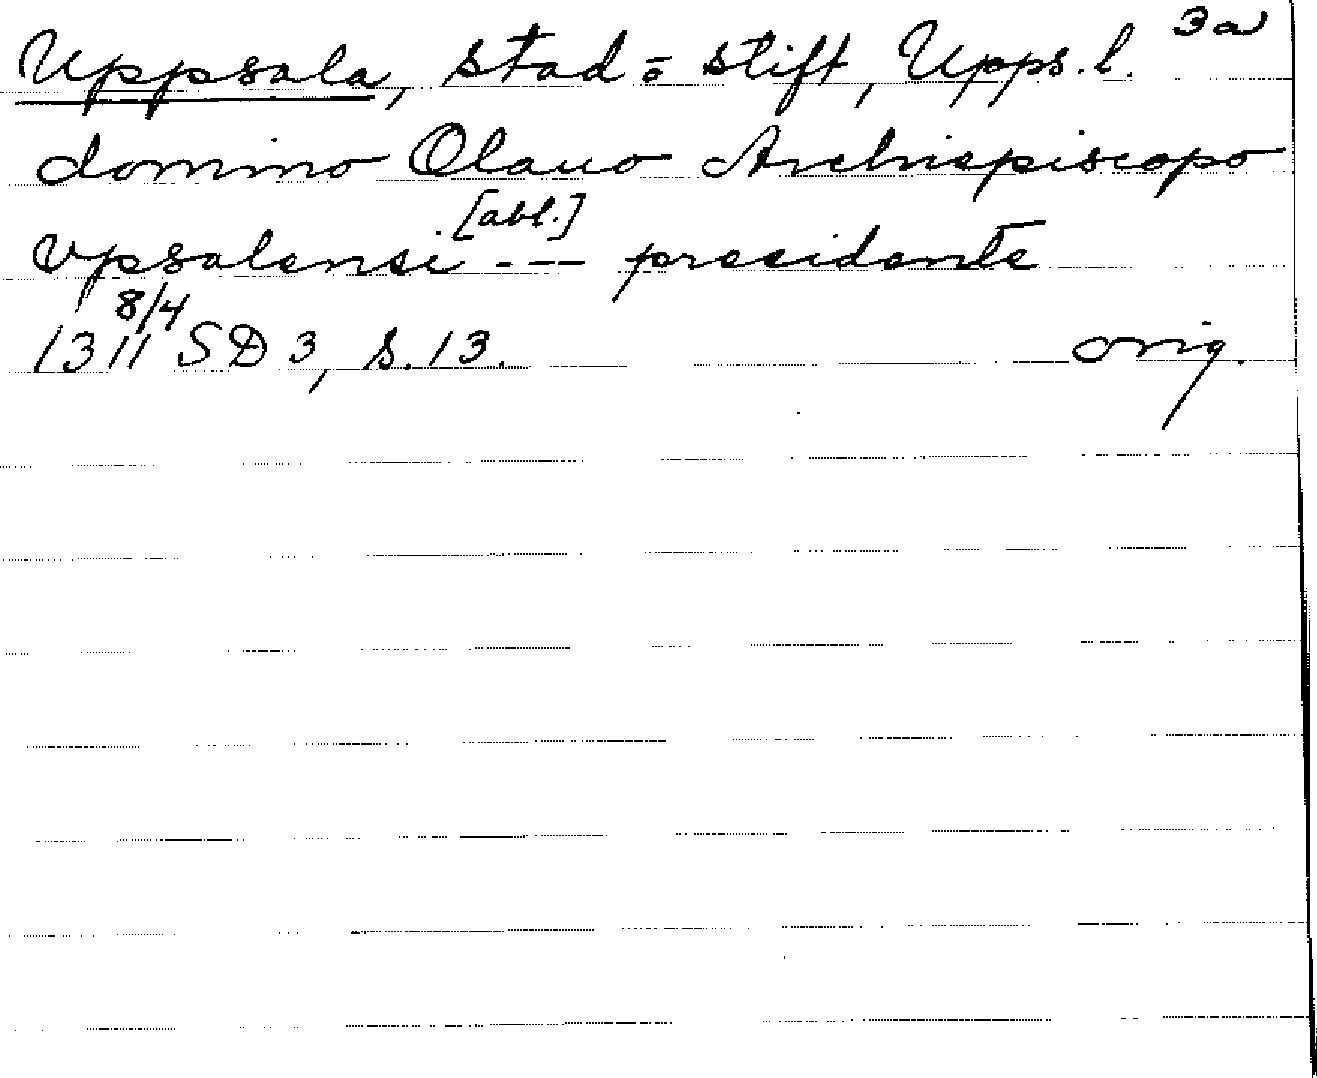 Uppsala, stad o stift, Upps.l. 3a
domino Olauo Archiepiscopo
vpsalensi [abl.] --- presidente
1311 8/4 SD 3, s.13. orig.